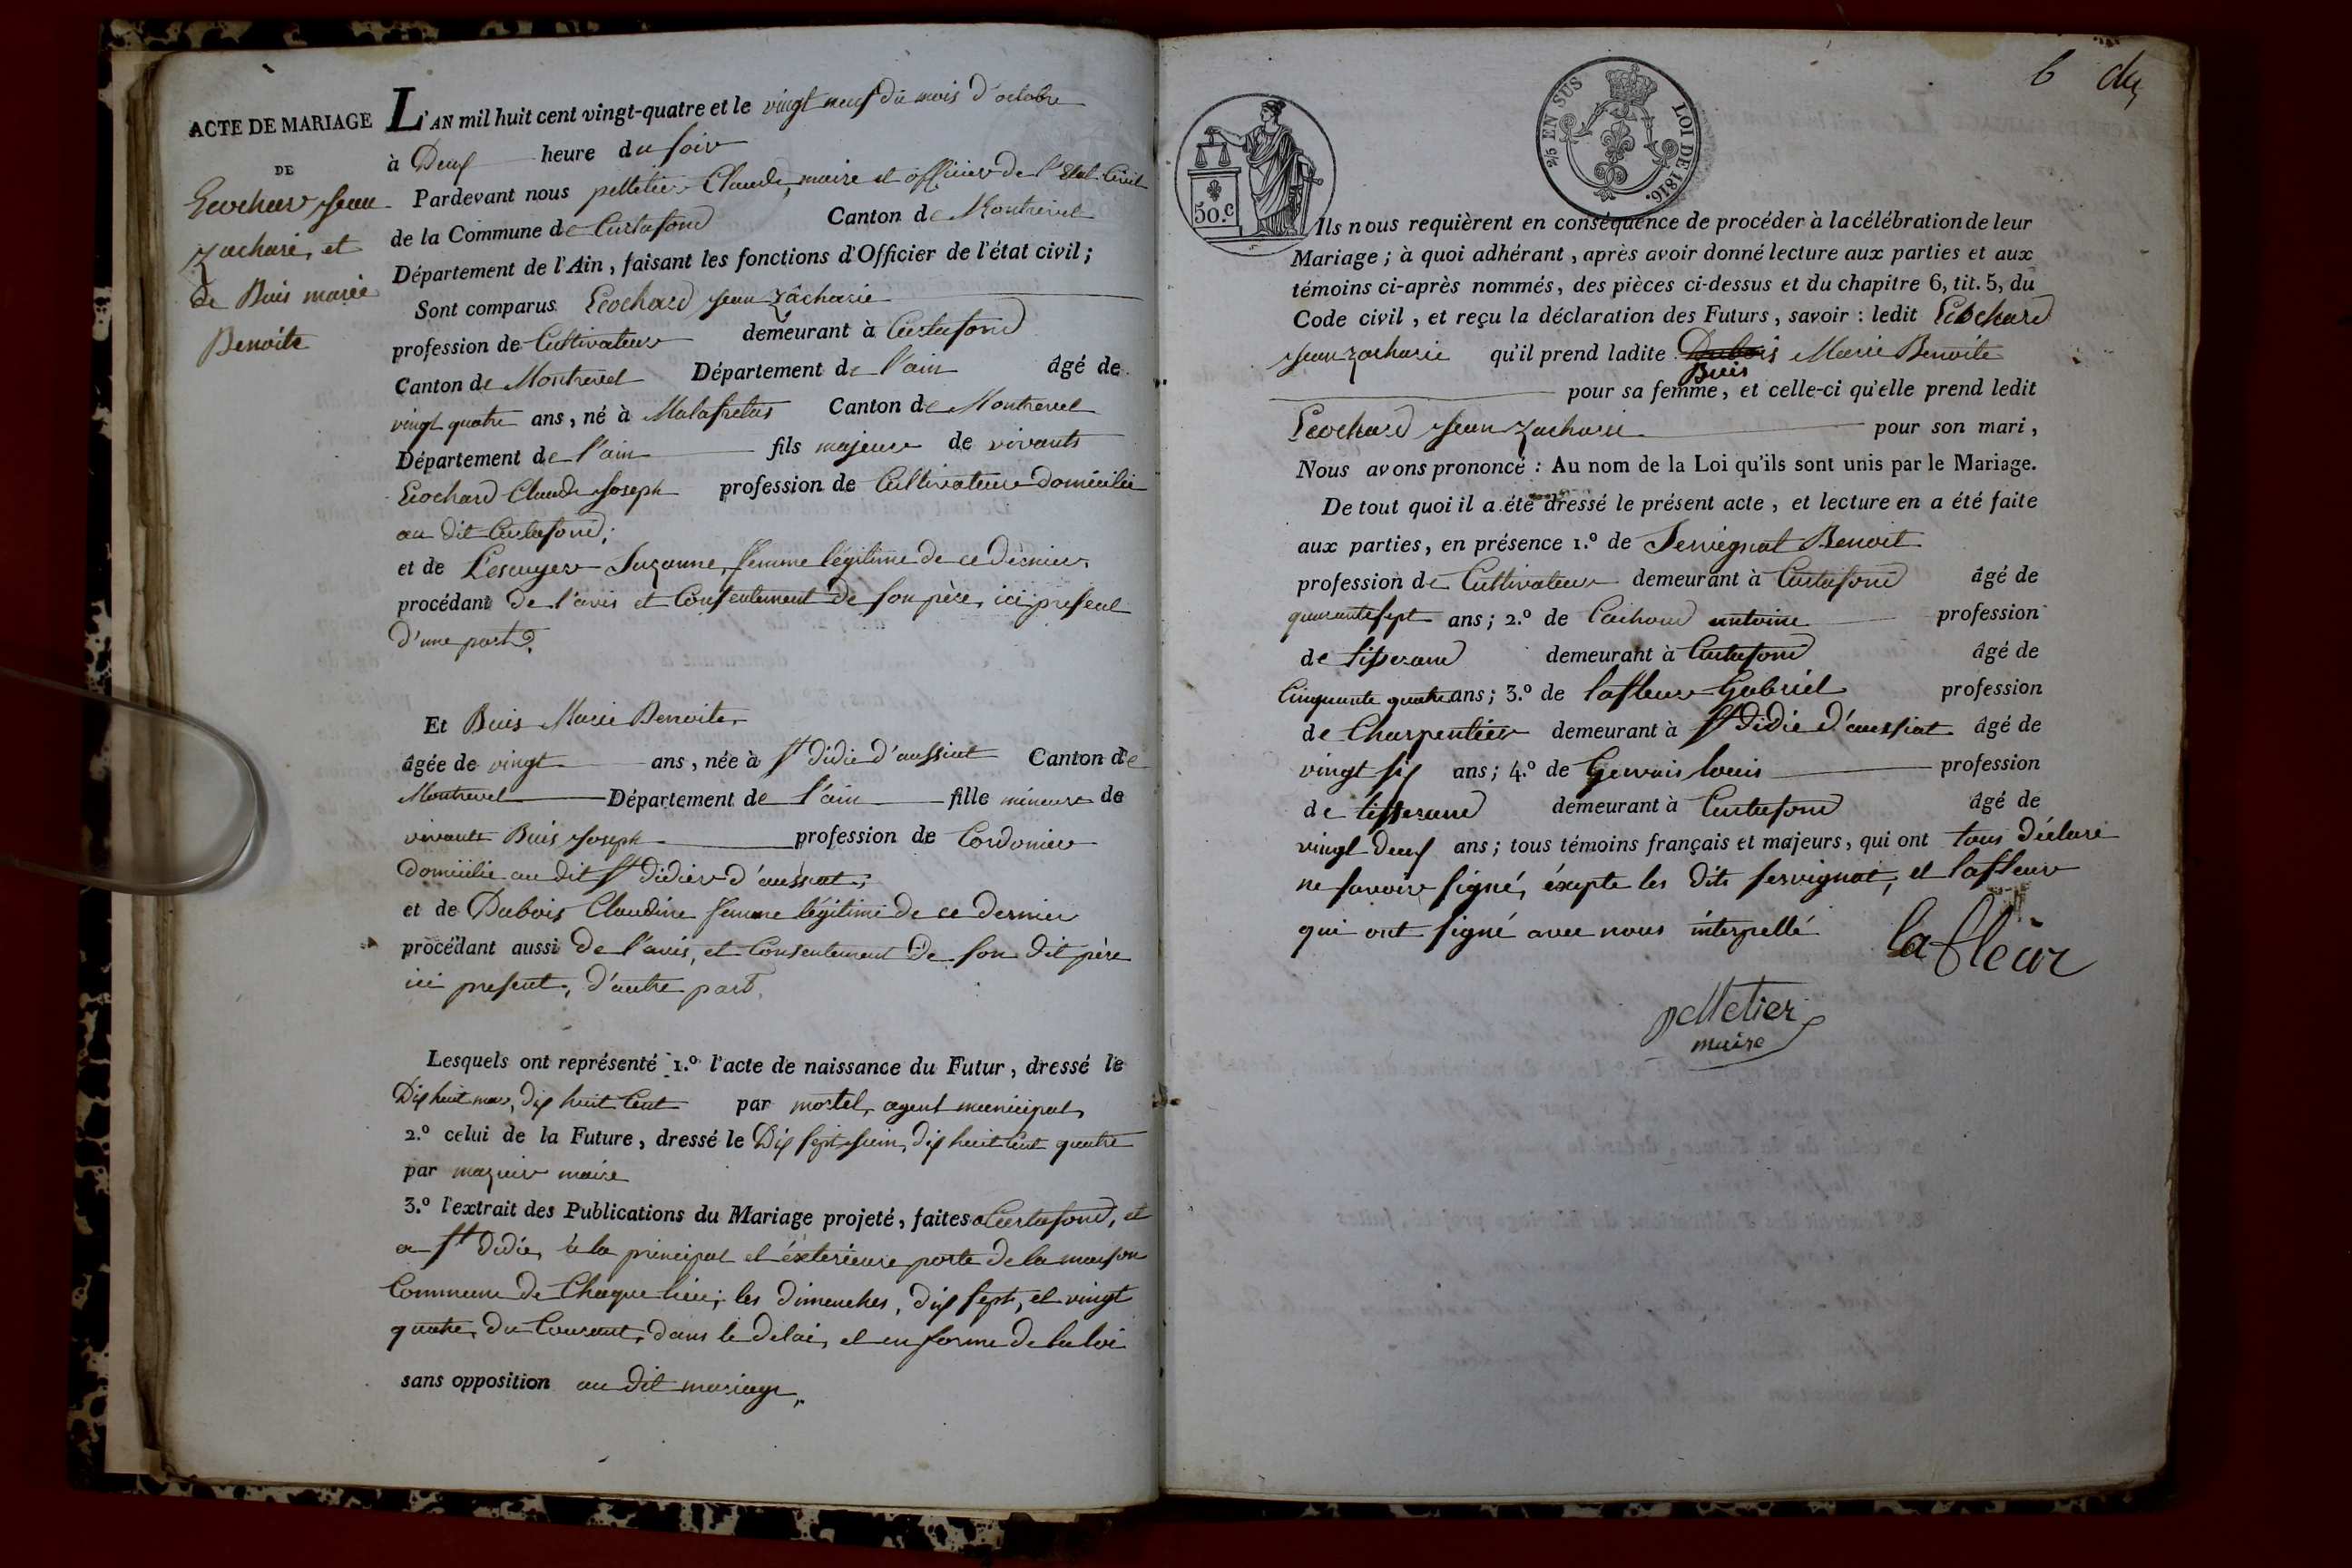 ACTE DE MARIAGE
DE
Ecochard Jean
Zacharie, et
de Buis marie
Benoite
L'AN mil huit cent vingt-quatre et le vingt neuf du mois d'octobre
à Deux heure du soir
Pardevant nous pelletier Claude, maire et officier de l'Etat Civil
de la Commune de Curtafond Canton de Montrevel
Département de l'Ain, faisant les fonctions d'Officier de l'état civil;
Sont comparus Ecochard Jean Zacharie
profession de Cultivateur demeurant à Curtafond
Canton de Montrevel Département de l'ain âgé de
vingt quatre ans, né à Malafretas Canton de Montrevel
Département de l'ain fils majeur de vivants
Ecochard Claude Joseph profession de Cultivateur domicilié
au dit Curtafond;
et de Lescuyer Suzanne, femme légitime de ce dernier,
procédant de l'avis et Consentement de son père, ici present
d'une part.
Et Buis Marie Benoite,
âgée de vingt ans, née à St didie d'aussiat Canton de
Montrevel Département de l'ain fille mineure de
vivants Buis Joseph profession de Cordonier
domicilié au dit St didier d'aussiat;
et de Dubois Claudine femme légitime de ce dernier
procédant aussi de l'avis, et Consentement de son dit père
ici present, d'autre part.
Lesquels ont représenté 1.º l'acte de naissance du Futur, dressé le
Dix huit mars, dix huit Cent par mortel, agent municipal,
2.º celui de la Future, dressé le Dix sept Juin, dix huit Cent quatre
par mazuir maire
3.º l'extrait des Publications du Mariage projeté, faites a Curtafond, et
a St didie, à la principal et éxterieure porte de la maison
Commune de Chaque lieu; les dimenches, dix sept, et vingt
quatre, du Courant, dans le delai, et en forme de la loi
sans opposition au dit mariage,
6 dy
2/5 EN SUS LOI DE 1816.
50.c
Ils nous requièrent en conséquence de procéder à la célébration de leur
Mariage; à quoi adhérant, après avoir donné lecture aux parties et aux
témoins ci-après nommés, des pièces ci-dessus et du chapitre 6, tit. 5, du
Code civil, et reçu la déclaration des Futurs, savoir: ledit Ecochard
Jean Zacharie qu'il prend ladite Dubois Marie Benoite
Buis
pour sa femme, et celle-ci qu'elle prend ledit
Ecochard Jean Zacharie pour son mari,
Nous avons prononcé: Au nom de la Loi qu'ils sont unis par le Mariage.
De tout quoi il a été dressé le présent acte, et lecture en a été faite
aux parties, en présence 1.º de Servignat Benoit
profession de Cultivateur demeurant à Curtafond âgé de
quarante sept ans; 2.º de Cachoud antoine profession
de tisserand demeurant à Curtafond âgé de
Cinquante quatre ans; 3.º de lafleur Gabriel profession
de Charpentier demeurant à St didie d'aussiat âgé de
vingt six ans; 4.º de Gervais louis profession
de tisserand demeurant à Curtafond âgé de
vingt deux ans; tous témoins français et majeurs, qui ont tous déclaré
ne savoir signé, éxepte les dits servignat, et lafleur
qui ont signé avec nous interpellé
lafleur
pelletier
maire